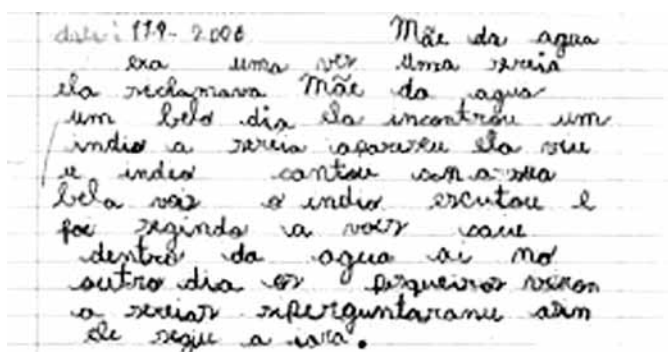 data: 119- 2008 Mãe da agua
era uma vez uma sereia
ela xeclamava Mãe da agua
um belo dia ela incontrou um
indio a sereia apareseu ela viu
u indio cantou con a sua
bela voz o indio escutou e
foe segindo a voz caue
dentro da agua ai no
outro dia os pesqueiros viron
a sereias siperguntaranu asin
ele segiu a iara.